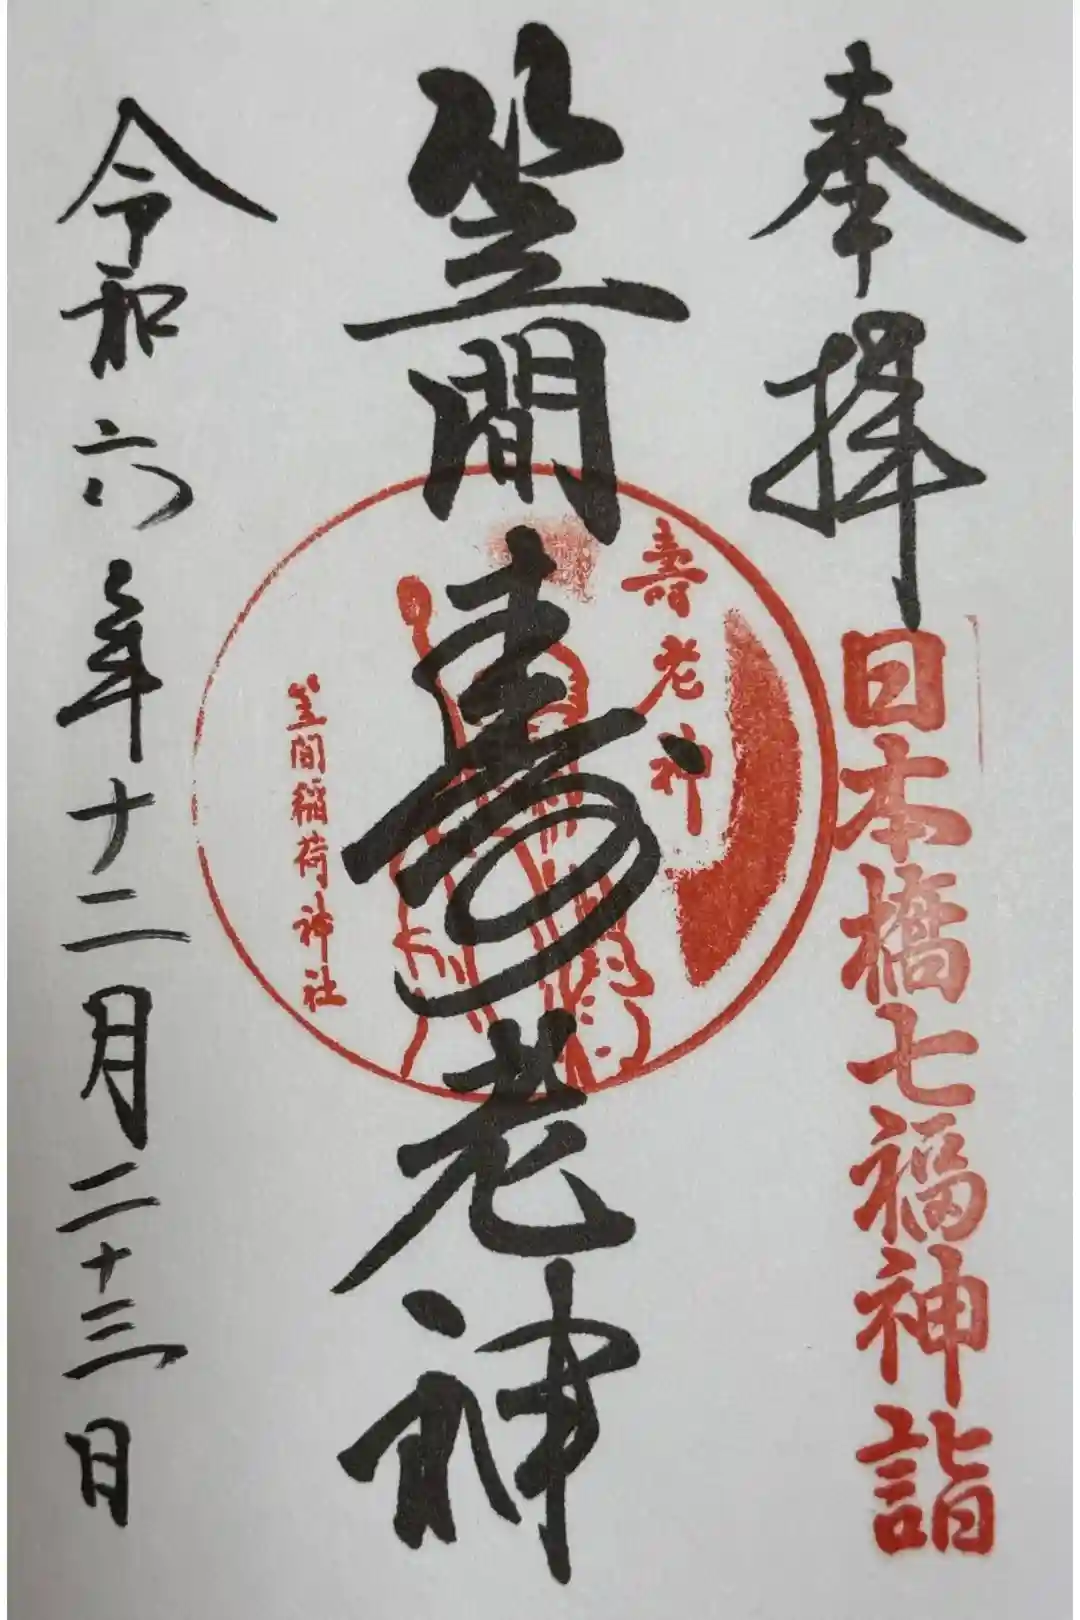 奉拝
日本橋七福神詣
笠間寿老神
壽老神
笠間稲荷神社
令和六年十二月二十三日